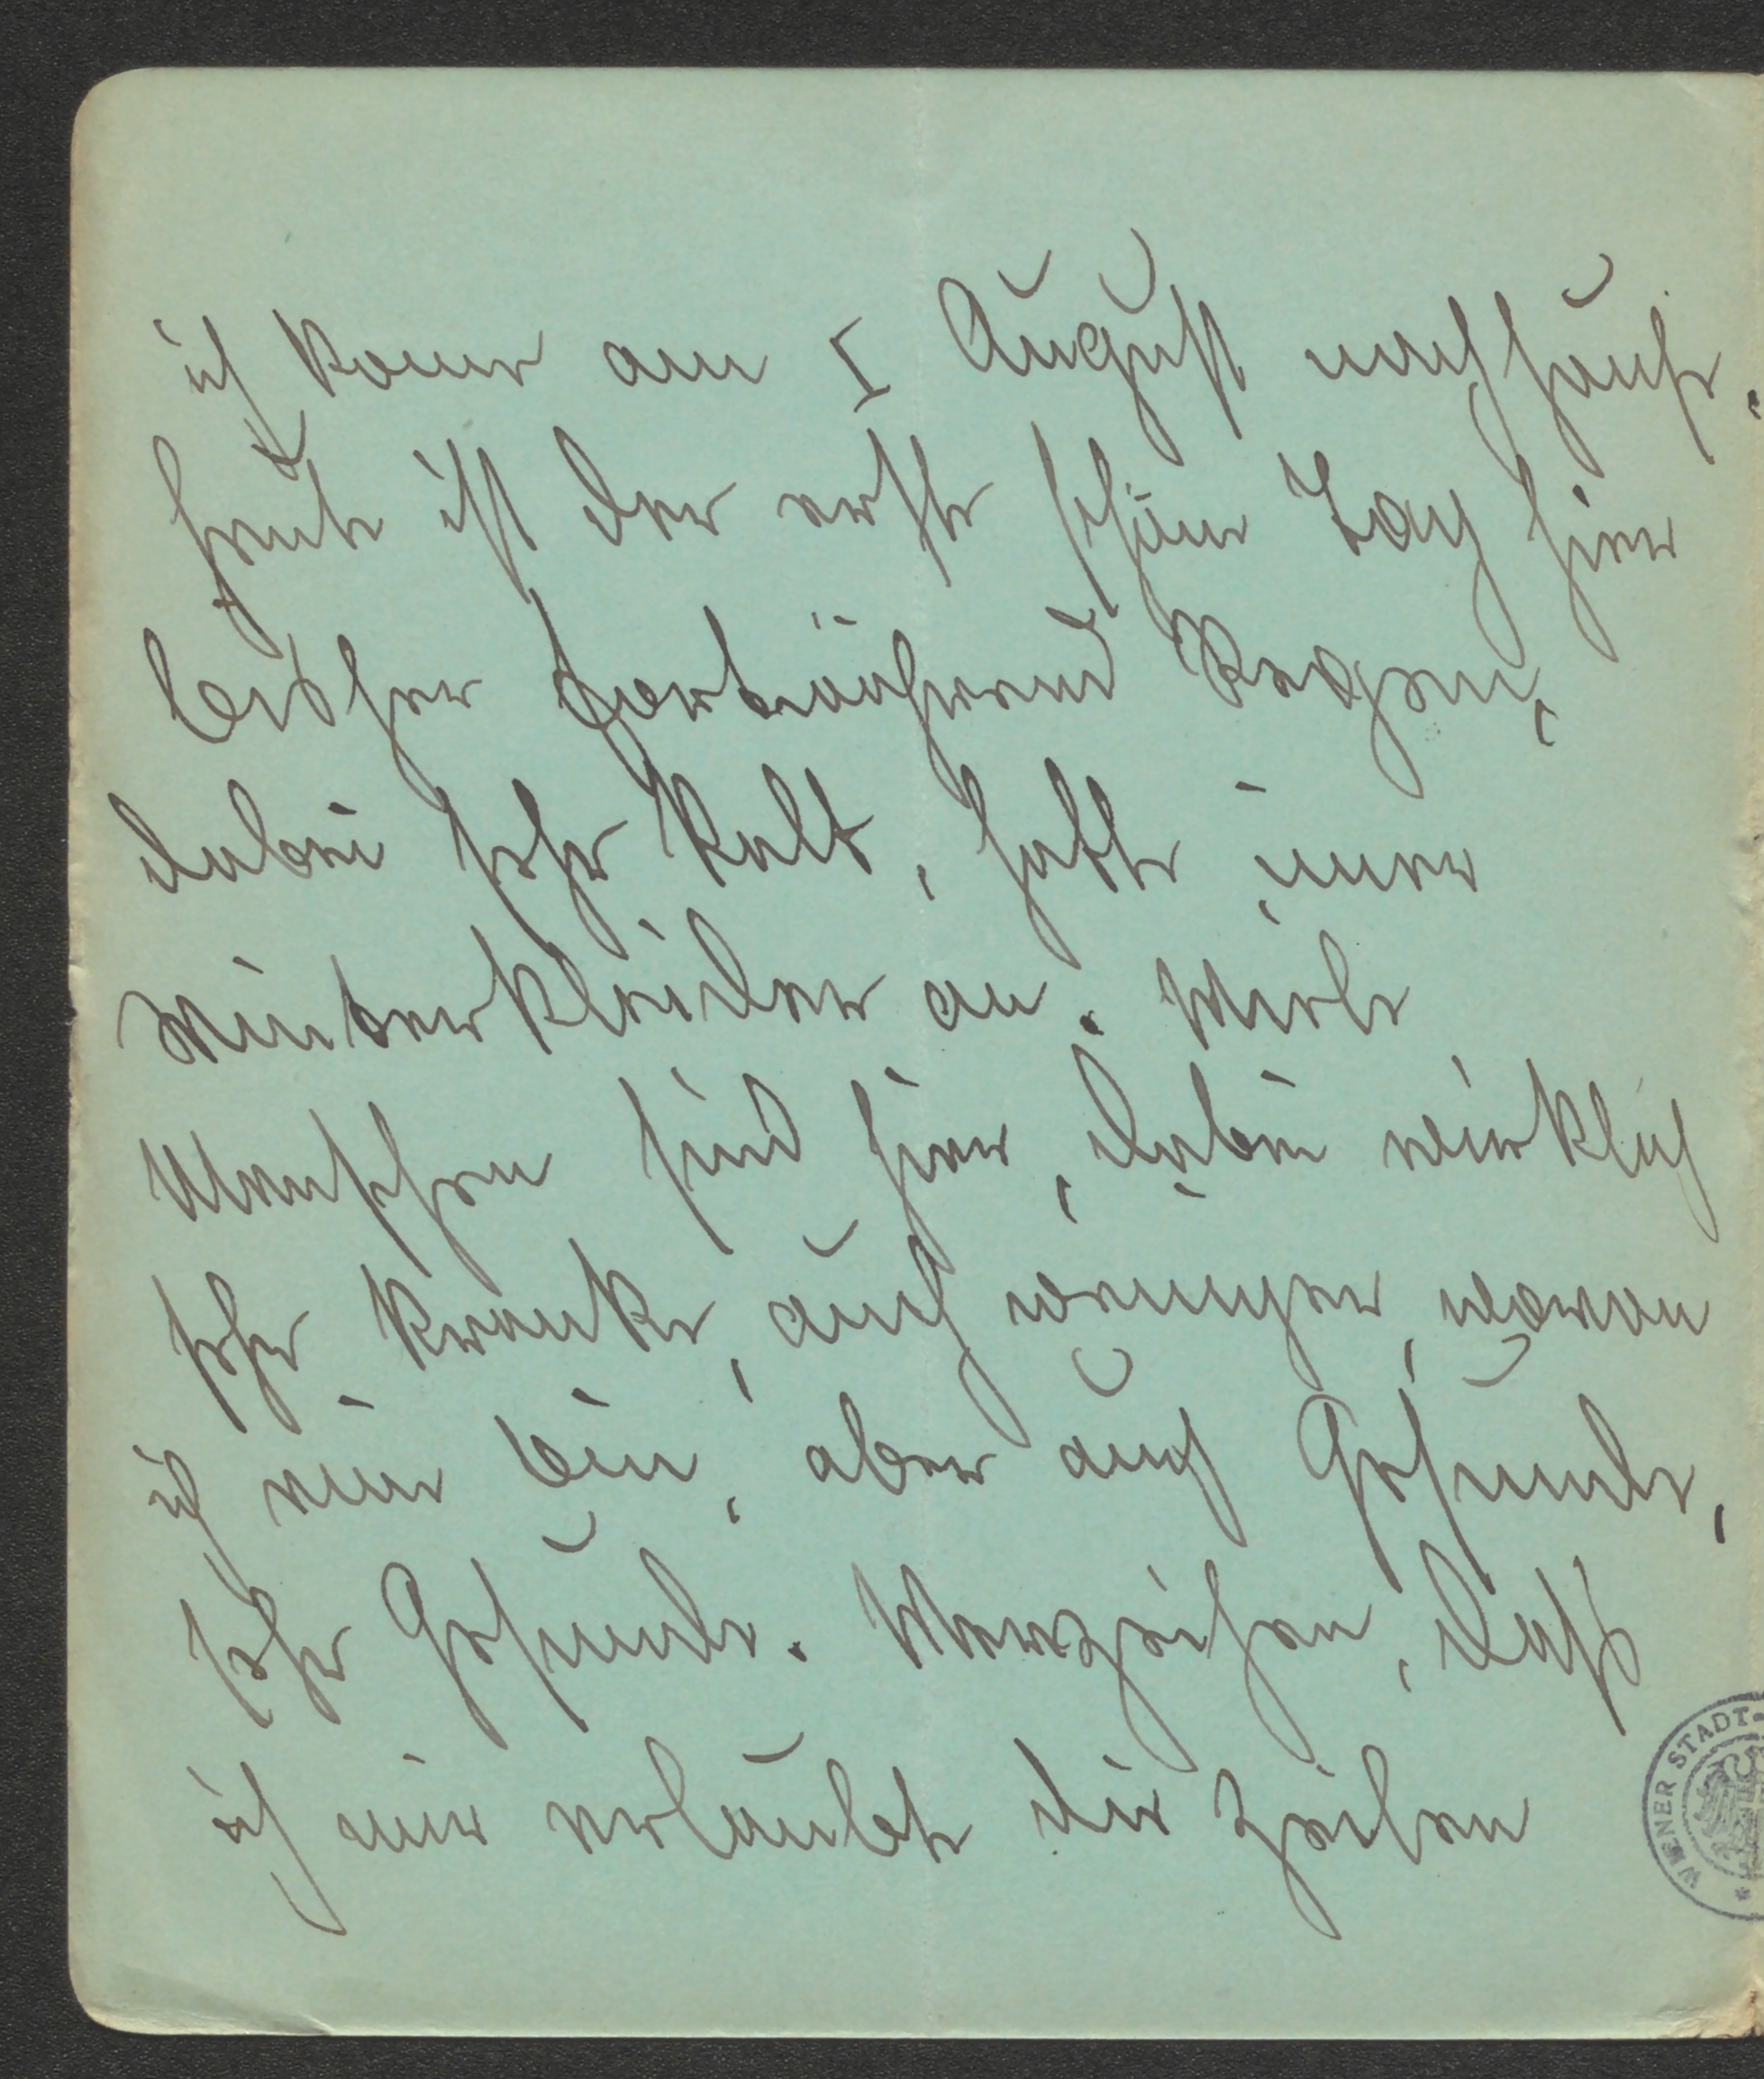 ich kome am 1 August nachhause.
heute ist der erste schöne Tag hier
bisher fortwährend Regen,
dabei sehr kalt, hatte imer
Winterkleider an. Viele
Menschen sind hier, dabei wirklich
sehr Kranke, auch weniger, woran
ich eine bin, aber auch Gesunde,
sehr Gesunde. Verzeihen, daß
ich mir erlaubte die Zeilen
WIENER STADT-